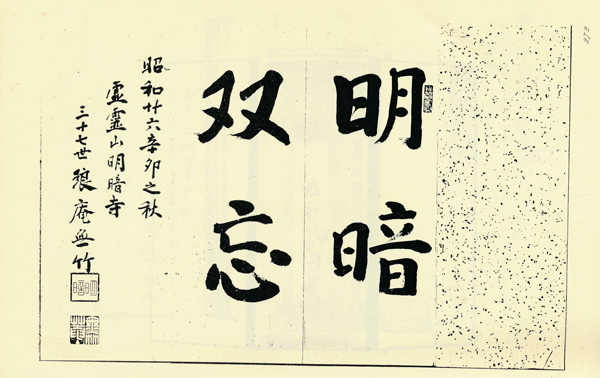 明暗
双忘
昭和廿六辛卯之秋
虚靈山明暗寺
三十七世 庵無竹
明暗